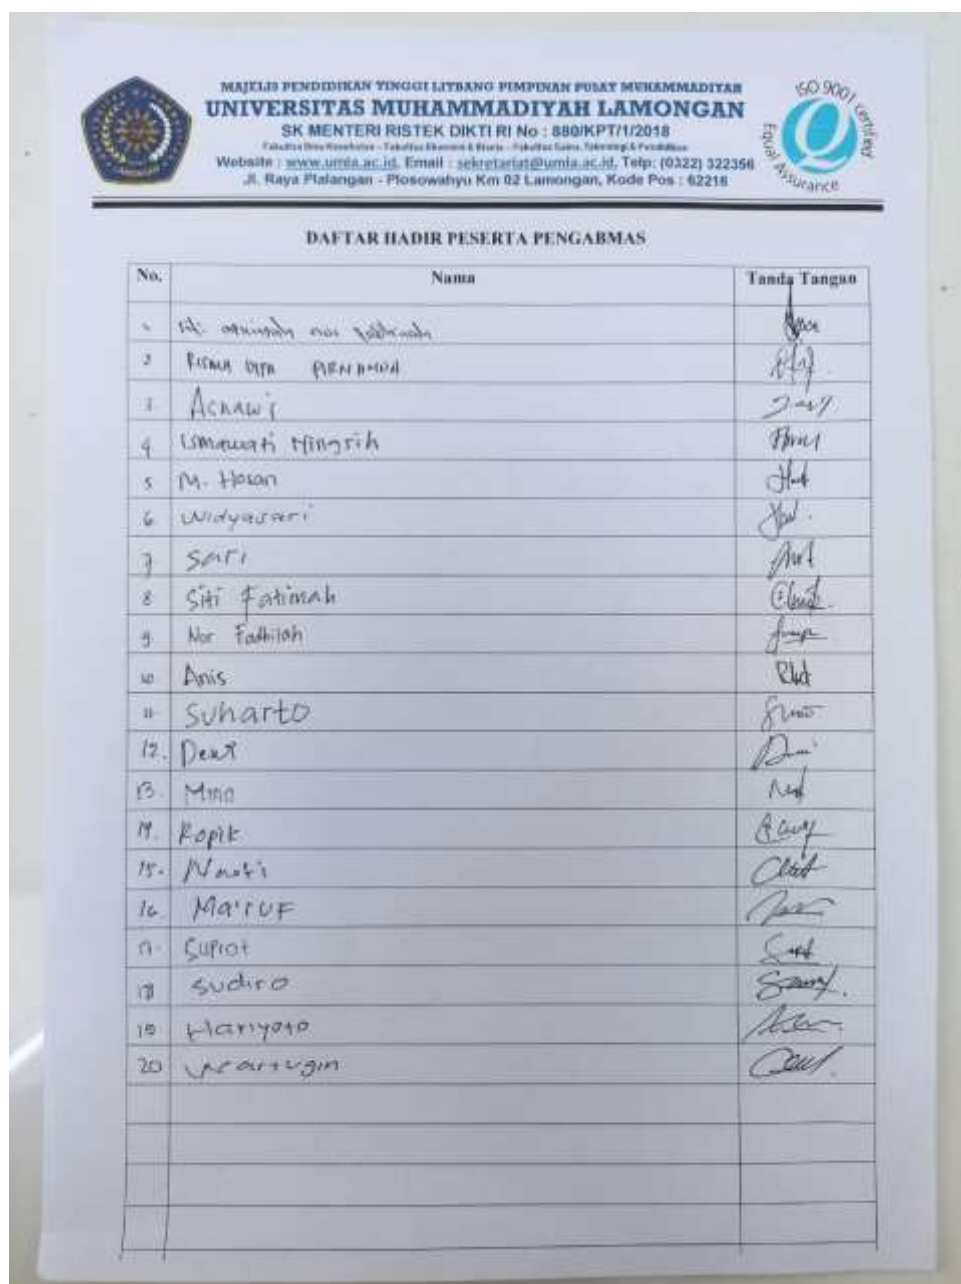 MAJELIS PENDIDIKAN TINGGI LITBANG PIMPINAN PUSAT MUHAMMADIYAH
UNIVERSITAS MUHAMMADIYAH LAMONGAN
SK MENTERI RISTEK DIKTI RI No : 880/KPT/I/2018
Fakultas Ilmu Kesehatan - Fakultas Ekonomi & Bisnis - Fakultas Sains, Teknologi & Pendidikan
Website : www.umla.ac.id, Email : sekretariat@umla.ac.id, Telp: (0322) 322356
Jl. Raya Plalangan - Plosowahyu Km 02 Lamongan, Kode Pos : 62218
LAMONGAN
ISO 9001 certified
Equal Assurance
DAFTAR HADIR PESERTA PENGABMAS
No. Nama Tanda Tangan
1 nor
2 Risma
3 Asnawi
4 Ismawati Ningsih
5 M. Hasan
6 Widyasari
7 Sari
8 Siti Fatimah
9. Nor Fadhilah
10 Anis
11 Suharto
12. Dewi
13. Mina
14. Ropik
15.
16 Ma'ruf
17. Suprot
18 Sudiro
19 Hariyoto
20